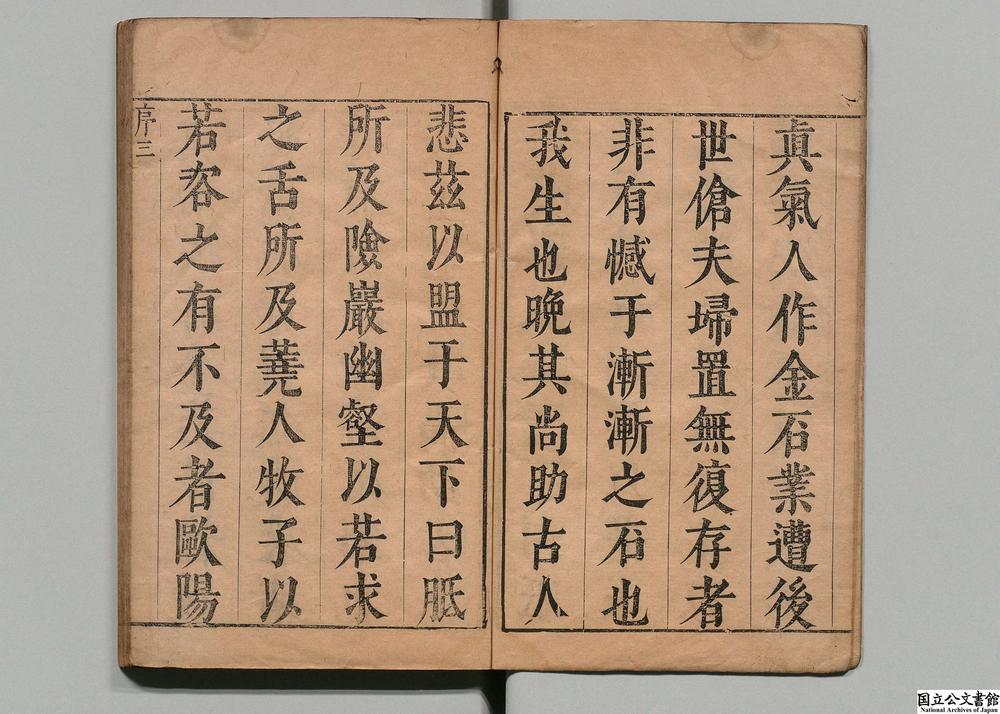 眞氣人作金石業遭後
世傖夫埽置無復存者
非有憾于漸漸之石也
我生也晚其尚助古人
悲茲以盟于天下曰胝
所及險巖幽壑以若求
之舌所及蕘人牧子以
若容之有不及者歐陽
序三
国立公文書館
National Archives of Japan